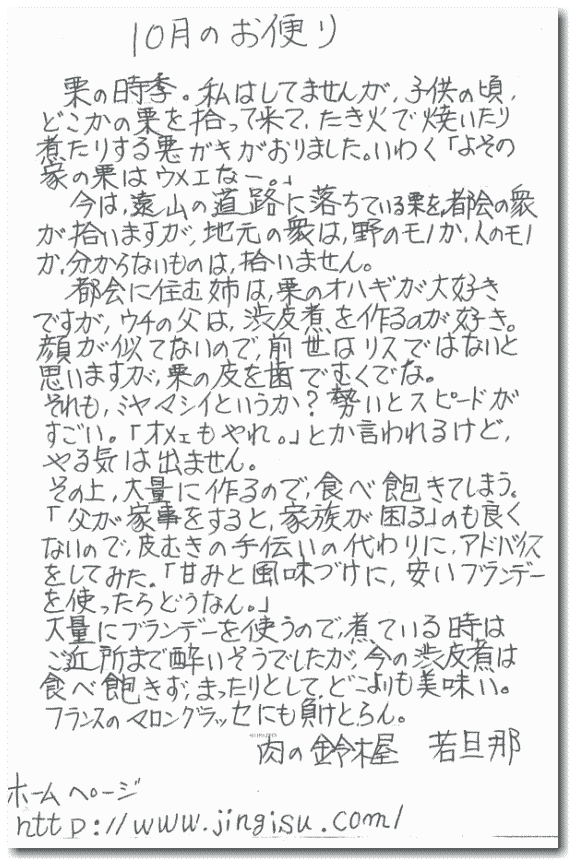 10月のお便り
栗の時季。私はしてませんが、子供の頃、
どこかの栗を拾って来て、たき火で焼いたり
煮たりする悪ガキがおりました。いわく「よその
家の栗はウメェなー。」
今は、遠山の道路に落ちている栗を、都会の衆
が拾いますが、地元の衆は、野のモノか、人のモノ
か、分からないものは、拾いません。
都会に住む姉は、栗のオハギが大好き
ですが、ウチの父は、渋皮煮を作るのが好き。
顔が似てないので、前世はリスではないと
思いますが、栗の皮を歯でむくでな。
それも、ミヤマシイというか?勢いとスピードが
すごい。「オメェもやれ。」とか言われるけど、
やる気は出ません。
その上、大量に作るので、食べ飽きてしまう。
「父が家事をすると、家族が困る」のも良く
ないので、皮むきの手伝いの代わりに、アドバイス
をしてみた。「甘みと風味づけに、安いブランデー
を使ったらどうなん。」
大量にブランデーを使うので、煮ている時は
ご近所まで酔いそうでしたが、今の渋皮煮は
食べ飽きず、まったりとして、どこよりも美味い。
フランスのマロングラッセにも負けとらん。
肉の鈴木屋 若旦那
ホームページ
http://www.jingisu.com/